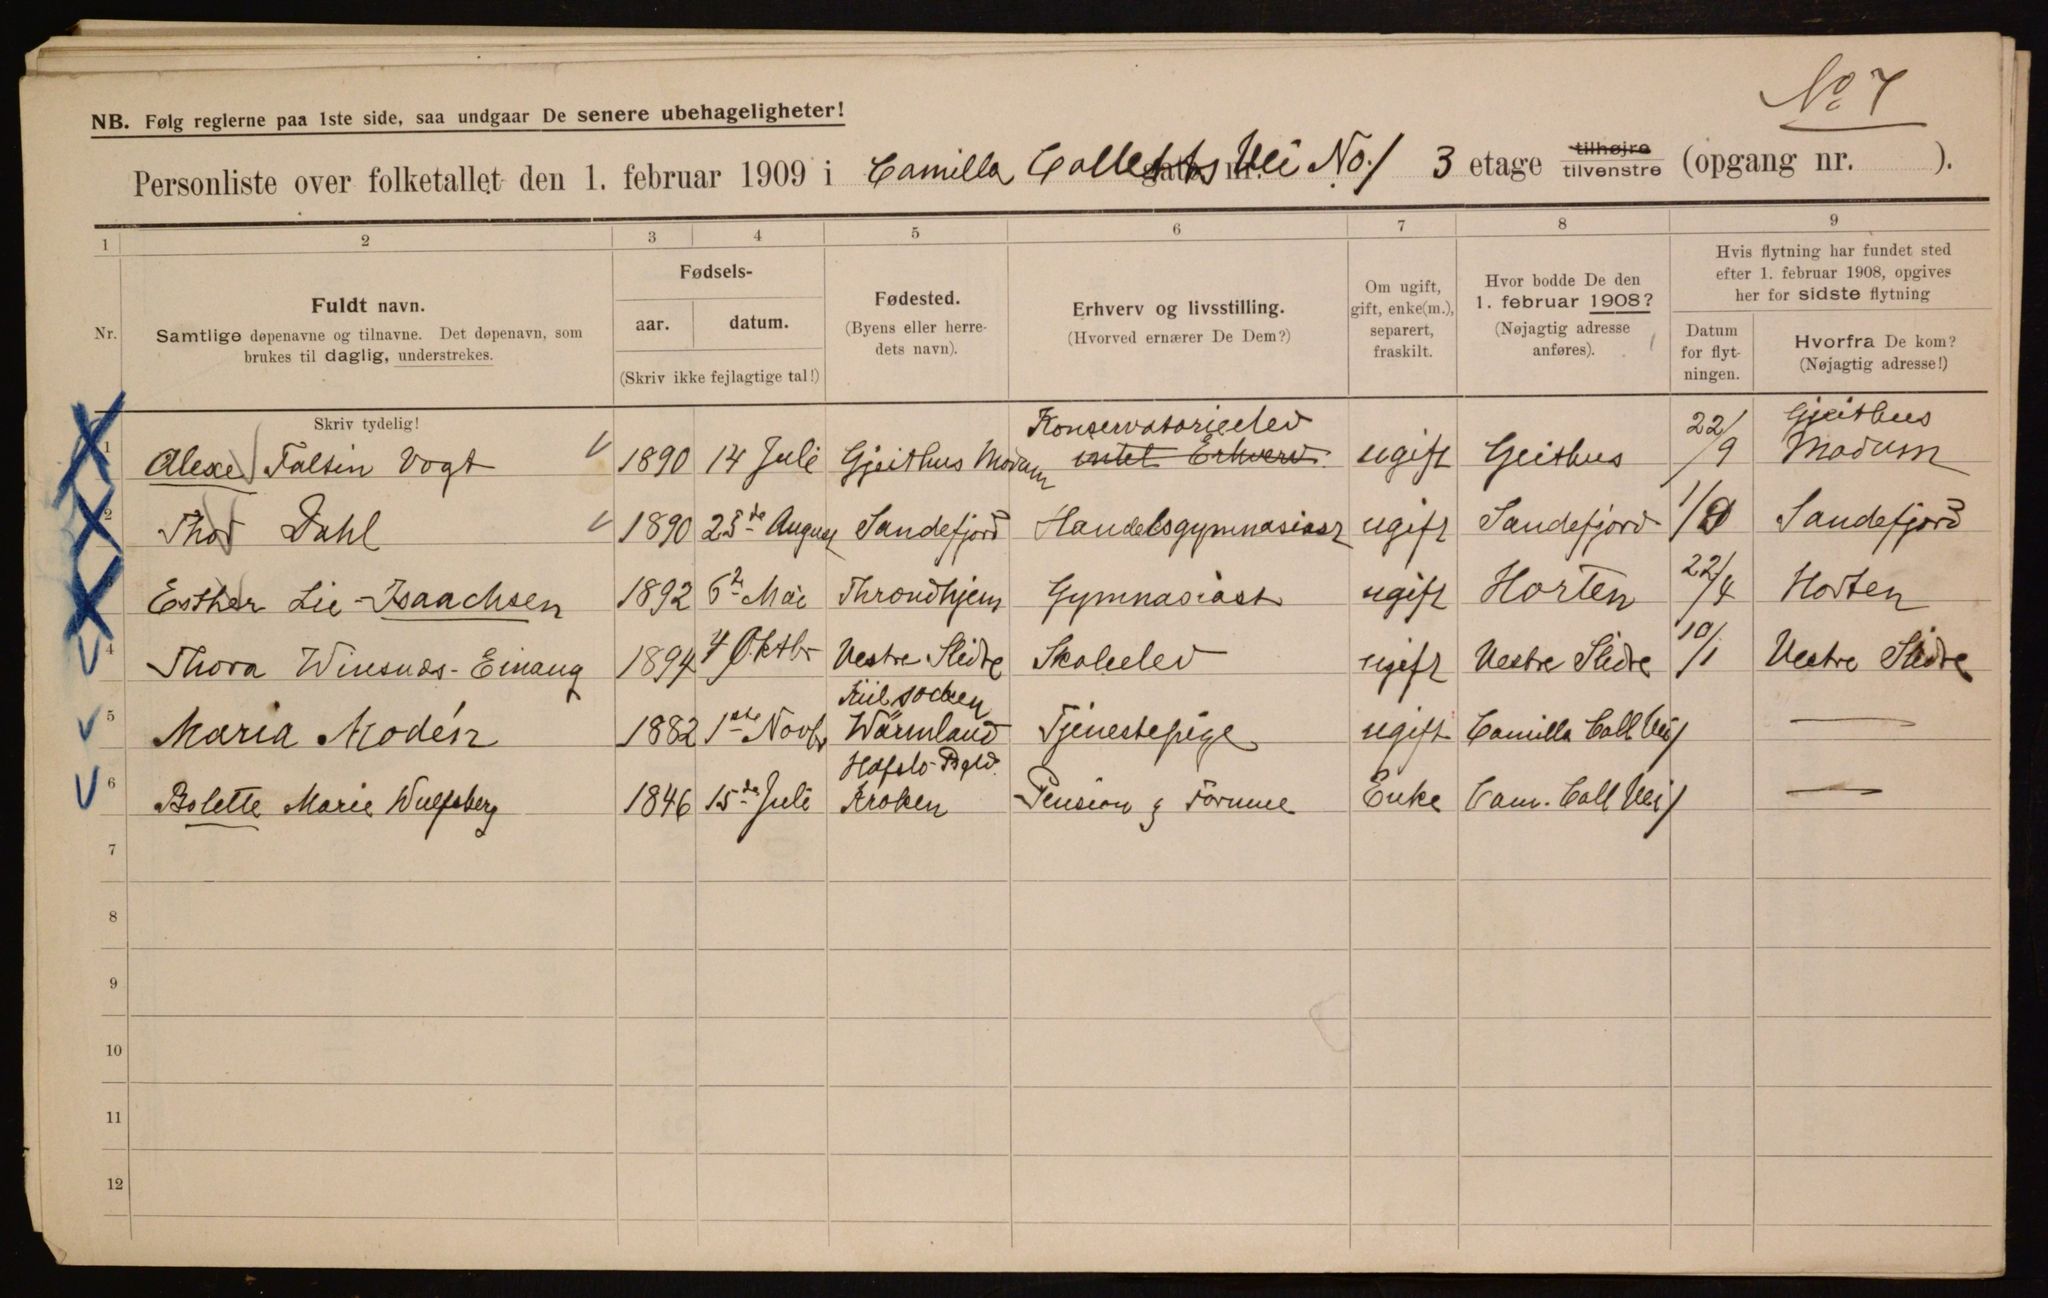 No. 7
NB. Følg reglerne paa 1ste side, saa undgaar De senere ubehageligheter!
Personliste over folketallet den 1. februar 1909 i Camilla Colletts Vei No. 1 gate nr. 3 etage tilhøjre tilvenstre (opgang nr. ).
1 2 3 4 5 6 7 8 9
Nr.
Fuldt navn.
Samtlige døpenavne og tilnavne. Det døpenavn, som
brukes til daglig, understrekes.
Fødsels-
aar. datum.
(Skriv ikke fejlagtige tal!)
Fødested.
(Byens eller herre-
dets navn).
Erhverv og livsstilling.
(Hvorved ernærer De Dem?)
Om ugift,
gift, enke(m.),
separert,
fraskilt.
Hvor bodde De den
1. februar 1908?
(Nøjagtig adresse
anføres).
Hvis flytning har fundet sted
efter 1. februar 1908, opgives
her for sidste flytning
Datum
for flyt-
ningen.
Hvorfra De kom?
(Nøjagtig adresse!)
Skriv tydelig!
Konservatorieelev Gjeithus
1 Alexe Falsen Vogt 1890 14 Juli Gjeithus Modum intet Erhverv ugift Geithus 22/9 Modum
2 Thor Dahl 1890 25de August Sandefjord Handelsgymnasiast ugift Sandefjord Sandefjord
Esther Lie-Isaachsen 1892 Mai Throndhjem Gymnasiast ugift Horten 22/4 Horten
4 Thora Winsnæs-Einang 1894 4 Oktbr Vestre Slidre Skoleelev ugift Vestre Slidre 10/1 Vestre Slidre
Kiil socken
5 Maria Modén 1882 1ste Novbr Wärmland Tjenestepige ugift Camilla Coll Vei 1 —
Hafslo Pgld.
6 Bolette Marie Wulfsberg 1846 15de Juli Kroken Pension & Formue Enke Cam. Coll Vei 1 —
7
8
9
10
11
12